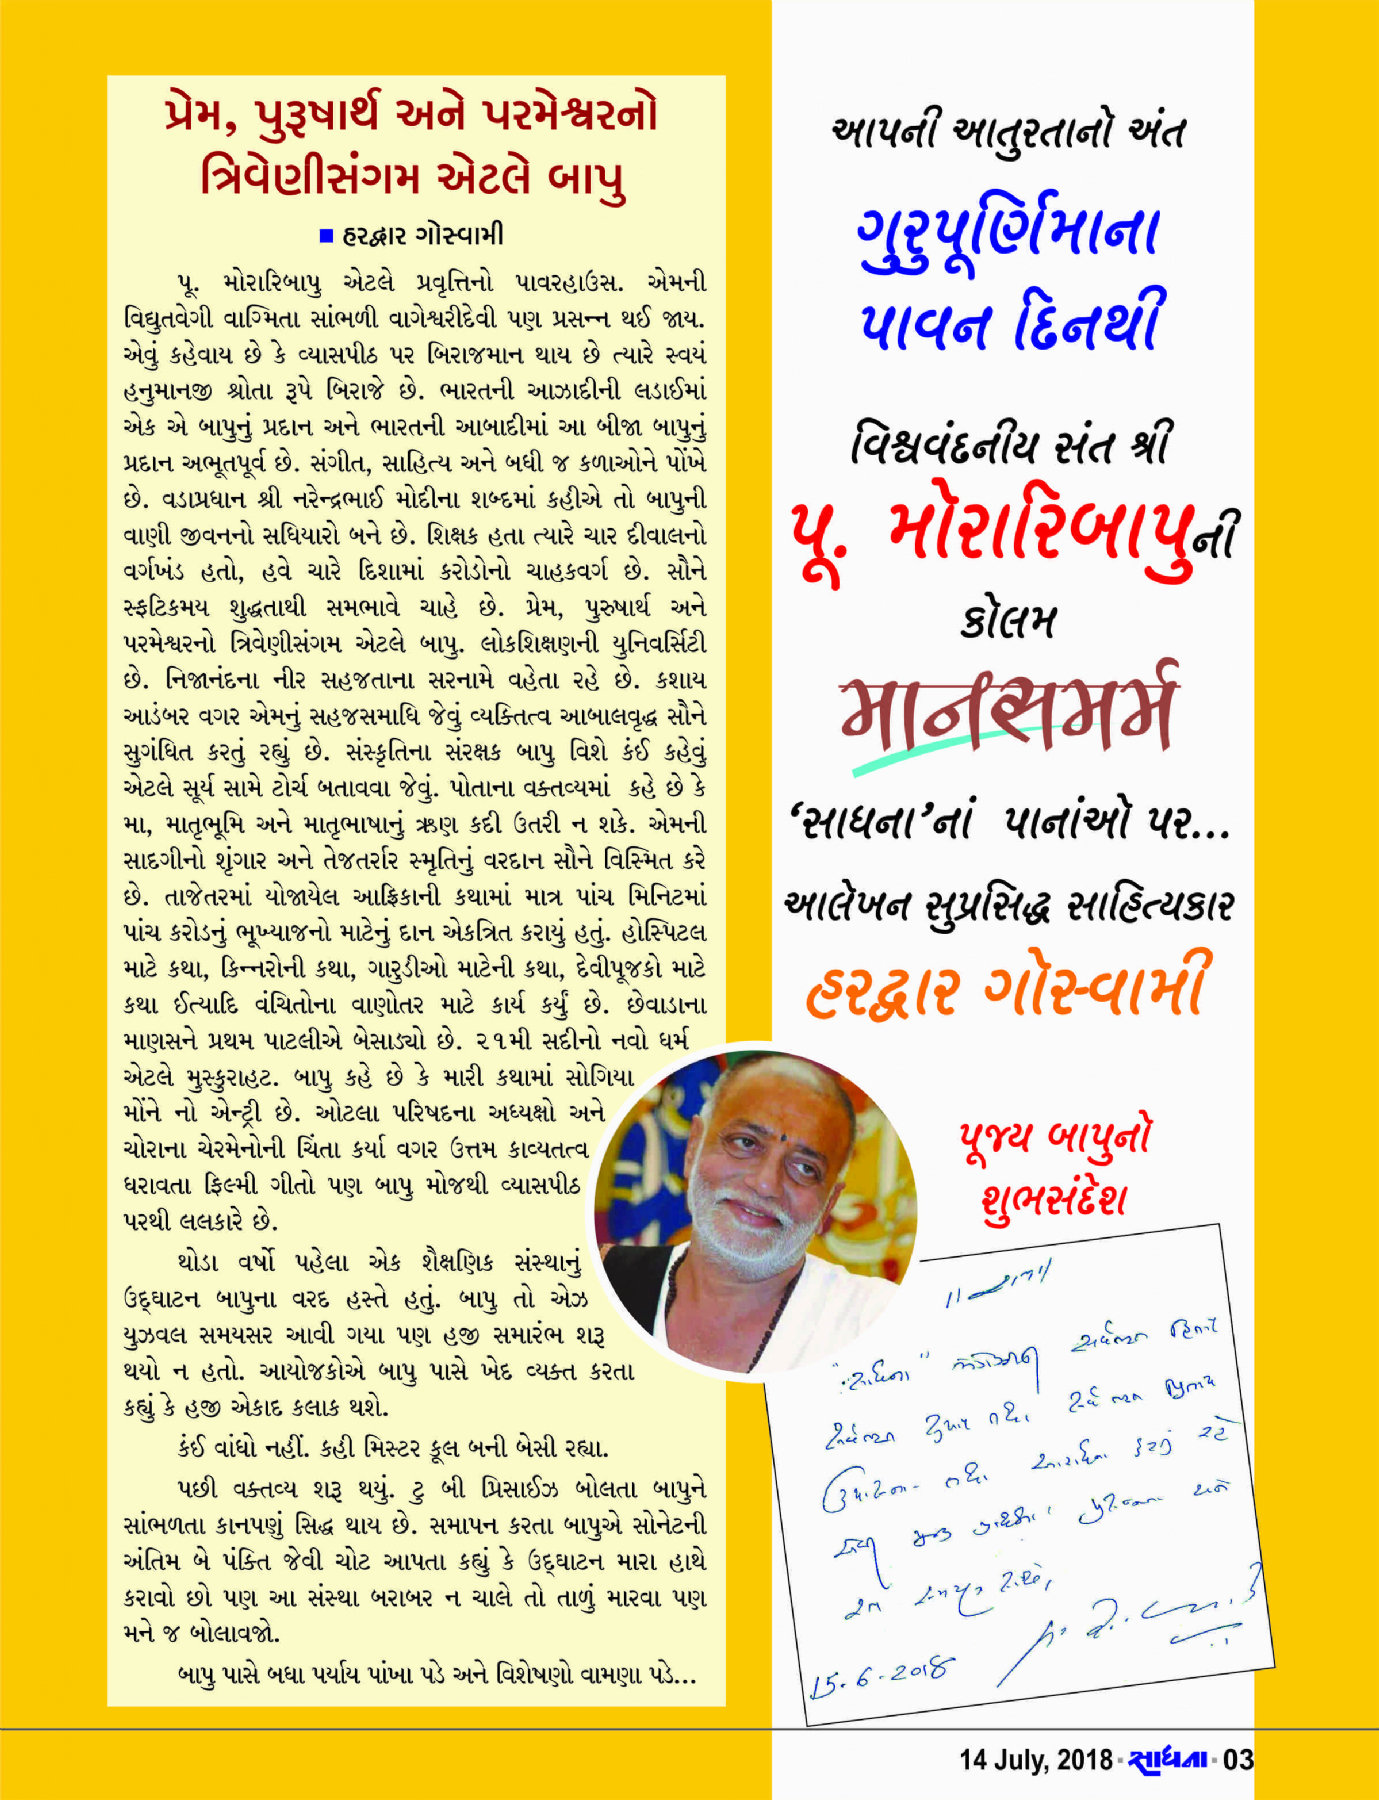 પ્રેમ, પુરૂષાર્થ અને પરમેશ્વરનો
ત્રિવેણીસંગમ એટલે બાપુ
હરદ્વાર ગોસ્વામી
પૂ. મોરારિબાપુ એટલે પ્રવૃત્તિનો પાવરહાઉસ. એમની
વિદ્યુતવેગી વાગ્મિતા સાંભળી વાગેશ્વરીદેવી પણ પ્રસન્ન થઈ જાય.
એવું કહેવાય છે કે વ્યાસપીઠ પર બિરાજમાન થાય છે ત્યારે સ્વયં
હનુમાનજી શ્રોતા રૂપે બિરાજે છે. ભારતની આઝાદીની લડાઈમાં
એક એ બાપુનું પ્રદાન અને ભારતની આબાદીમાં આ બીજા બાપુનું
પ્રદાન અભૂતપૂર્વ છે. સંગીત, સાહિત્ય અને બધી જ કળાઓને પોંખે
છે. વડાપ્રધાન શ્રી નરેન્દ્રભાઈ મોદીના શબ્દમાં કહીએ તો બાપુની
વાણી જીવનનો સધિયારો બને છે. શિક્ષક હતા ત્યારે ચાર દીવાલનો
વર્ગખંડ હતો, હવે ચારે દિશામાં કરોડોનો ચાહકવર્ગ છે. સૌને
સ્ફટિકમય શુદ્ધતાથી સમભાવે ચાહે છે. પ્રેમ, પુરુષાર્થ અને
પરમેશ્વરનો ત્રિવેણીસંગમ એટલે બાપુ. લોકશિક્ષણની યુનિવર્સિટી
છે. નિજાનંદના નીર સહજતાના સરનામે વહેતા રહે છે. કશાય
આડંબર વગર એમનું સહજસમાધિ જેવું વ્યક્તિત્વ આબાલવૃદ્ધ સૌને
સુગંધિત કરતું રહ્યું છે. સંસ્કૃતિના સંરક્ષક બાપુ વિશે કંઈ કહેવું
એટલે સૂર્ય સામે ટોર્ચ બતાવવા જેવું. પોતાના વક્તવ્યમાં કહે છે કે
મા, માતૃભૂમિ અને માતૃભાષાનું ઋણ કદી ઉતરી ન શકે. એમની
સાદગીનો શૃંગાર અને તેજતર્રાર સ્મૃતિનું વરદાન સૌને વિસ્મિત કરે
છે. તાજેતરમાં યોજાયેલ આફ્રિકાની કથામાં માત્ર પાંચ મિનિટમાં
પાંચ કરોડનું ભૂખ્યાજનો માટેનું દાન એકત્રિત કરાયું હતું. હોસ્પિટલ
માટે કથા, કિન્નરોની કથા, ગારુડીઓ માટેની કથા, દેવીપૂજકો માટે
કથા ઈત્યાદિ વંચિતોના વાણોતર માટે કાર્ય કર્યું છે. છેવાડાના
માણસને પ્રથમ પાટલીએ બેસાડ્યો છે. ૨૧મી સદીનો નવો ધર્મ
એટલે મુસ્કુરાહટ. બાપુ કહે છે કે મારી કથામાં સોગિયા
મોંને નો એન્ટ્રી છે. ઓટલા પરિષદના અધ્યક્ષો અને
ચોરાના ચેરમેનોની ચિંતા કર્યા વગર ઉત્તમ કાવ્યતત્વ
ધરાવતા ફિલ્મી ગીતો પણ બાપુ મોજથી વ્યાસપીઠ
પરથી લલકારે છે.
થોડા વર્ષો પહેલા એક શૈક્ષણિક સંસ્થાનું
ઉદ્ઘાટન બાપુના વરદ હસ્તે હતું. બાપુ તો એઝ
યુઝવલ સમયસર આવી ગયા પણ હજી સમારંભ શરૂ
થયો ન હતો. આયોજકોએ બાપુ પાસે ખેદ વ્યક્ત કરતા
કહ્યું કે હજી એકાદ કલાક થશે.
કંઈ વાંધો નહીં. કહી મિસ્ટર કૂલ બની બેસી રહ્યા.
પછી વક્તવ્ય શરૂ થયું. ટુ બી પ્રિસાઈઝ બોલતા બાપુને
સાંભળતા કાનપણું સિદ્ધ થાય છે. સમાપન કરતા બાપુએ સોનેટની
અંતિમ બે પંક્તિ જેવી ચોટ આપતા કહ્યું કે ઉદ્ઘાટન મારા હાથે
કરાવો છો પણ આ સંસ્થા બરાબર ન ચાલે તો તાળું મારવા પણ
મને જ બોલાવજો.
બાપુ પાસે બધા પર્યાય પાંખા પડે અને વિશેષણો વામણા પડે...
આપની આતુરતાનો અંત
ગુરુપૂર્ણિમાના
પાવન દિનથી
વિશ્વવંદનીય સંત શ્રી
પૂ. મોરારિબાપુની
કોલમ
માનસમર્મ
‘સાધના’નાં પાનાંઓ પર...
આલેખન સુપ્રસિદ્ધ સાહિત્યકાર
હરદ્વાર ગોસ્વામી
પૂજ્ય બાપુનો
શુભસંદેશ
15-6-2018
14 July, 2018 સાધના 03